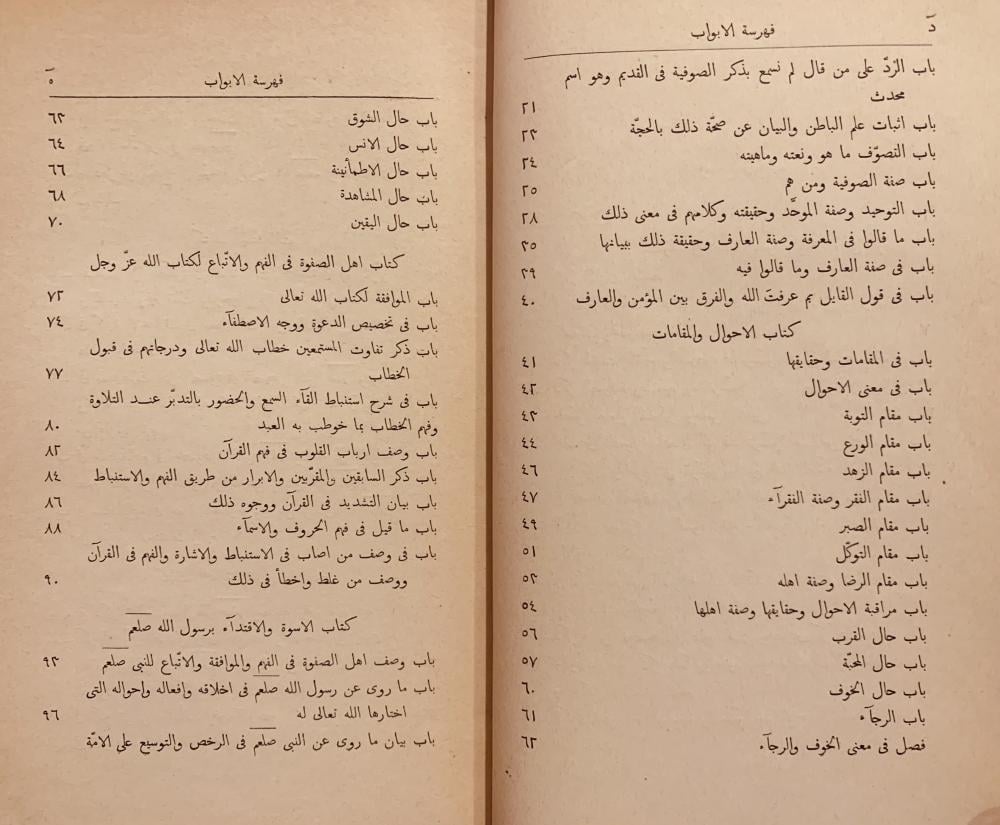 د
فهرسة الابواب
باب الرّدّ على من قال لم نسمع بذكر الصوفية فى القديم وهو اسم
محدث ٢١
باب اثبات علم الباطن والبيان عن صحّة ذلك بالحجّة ٢٣
باب التصوّف ما هو ونعته وماهيته ٢٤
باب صفة الصوفية ومن هم ٢٥
باب التوحيد وصفة الموحَّد وحقيقته وكلامهم فى معنى ذلك ٢٨
باب ما قالوا فى المعرفة وصفة العارف وحقيقة ذلك ببيانها ٣٥
باب فى صفة العارف وما قالوا فيه ٣٩
باب فى قول القايل بم عرفتَ الله والفرق بين المؤمن والعارف ٤٠
كتاب الاحوال والمقامات
باب فى المقامات وحقايقها ٤١
باب فى معنى الاحوال ٤٢
باب مقام التوبة ٤٣
باب مقام الورع ٤٤
باب مقام الزهد ٤٦
باب مقام الفقر وصفة الفقرآء ٤٧
باب مقام الصبر ٤٩
باب مقام التوكّل ٥١
باب مقام الرضا وصفة اهله ٥٣
باب مراقبة الاحوال وحقايقها وصفة اهلها ٥٤
باب حال القرب ٥٦
باب حال المحبّة ٥٧
باب حال الخوف ٦٠
باب الرجآء ٦١
فصل فى معنى الخوف والرجآء ٦٢
ه
فهرسة الابواب
باب حال الشوق ٦٣
باب حال الانس ٦٤
باب حال الاطمأنينة ٦٦
باب حال المشاهدة ٦٨
باب حال اليقين ٧٠
كتاب اهل الصفوة فى الفهم والاتّباع لكتاب الله عزّ وجل
باب الموافقة لكتاب الله تعالى ٧٢
باب فى تخصيص الدعوة ووجه الاصطفآء ٧٤
باب ذكر تفاوت المستمعين خطاب الله تعالى ودرجاتهم فى قبول
الخطاب ٧٧
باب فى شرح استنباط القآء السمع والحضور بالتدبّر عنـد التلاوة
وفهم الخطاب بما خوطب به العبد ٨٠
باب وصف ارباب القلوب فى فهم القرآن ٨٢
باب ذكر السابقين والمقرّبين والابرار من طريق الفهم والاستنباط ٨٤
باب بيان التشديد فى القرآن ووجوه ذلك ٨٦
باب ما قيل فى فهم الحروف والاسمآء ٨٨
باب فى وصف من اصاب فى الاستنباط والاشارة والفهم فى القرآن
ووصف من غلط واخطأ فى ذلك ٩٠
كتاب الاسوة والاقتدآء برسول الله صلعم
باب وصف اهل الصفوة فى الفهم والموافقة والاتّباع للنبى صلعم ٩٣
باب ما روى عن رسول الله صلعم فى اخلاقه وافعاله واحواله التى
اختارها الله تعالى له ٩٦
باب بيان ما روى عن النبى صلعم فى الرخص والتوسيع على الامّة